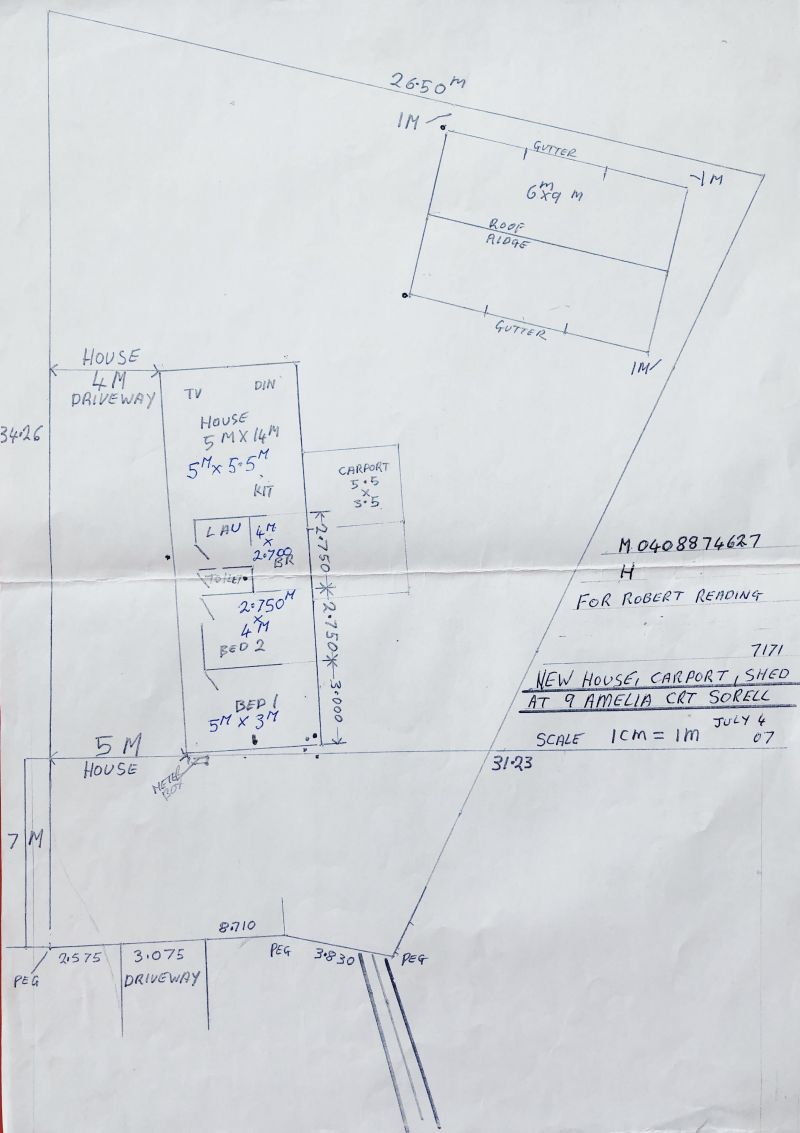 26.50 M
1M
GUTTER
1M
6M X 9 M
ROOF
RIDGE
GUTTER
1M
HOUSE
4M
DRIVEWAY
34.26
TV
DIN
HOUSE
5 M X 14 M
5M X 5.5M
KIT
CARPORT
5.5
X
3.5
LAU
4M
X
2.700
BR
TOILET
2.750M
X
4M
BED 2
BED 1
5M X 3M
2.750
2.750
3.000
M 0408874627
H
FOR ROBERT READING
7171
NEW HOUSE, CARPORT, SHED
AT 9 AMELIA CRT SORELL
JULY 4
SCALE 1CM = 1M
07
5 M
HOUSE
METER
BOX
31.23
7 M
PEG
2.575
3.075
DRIVEWAY
8.710
PEG
3.830
PEG